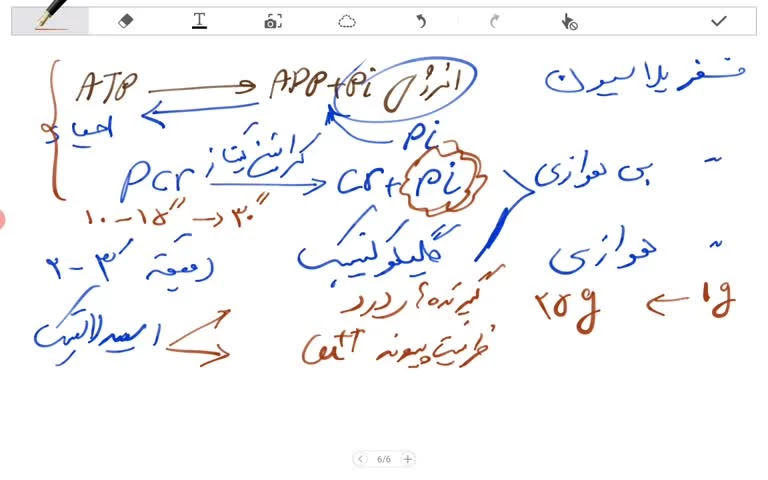 ATP → ADP + Pi انرژی فسفریلاسیون
احیاء ← Pi
Pcr → کراتین کیناز Cr + Pi بی هوازی "
۱۰ - ۱۵" → ۳۰"
۲ - ۳ دقیقه گلیکولیتیک هوازی "
گیرنده های درد ۲۵g ← ۱g
اسید لاکتیک ظرفیت پیوند Ca++
6/6